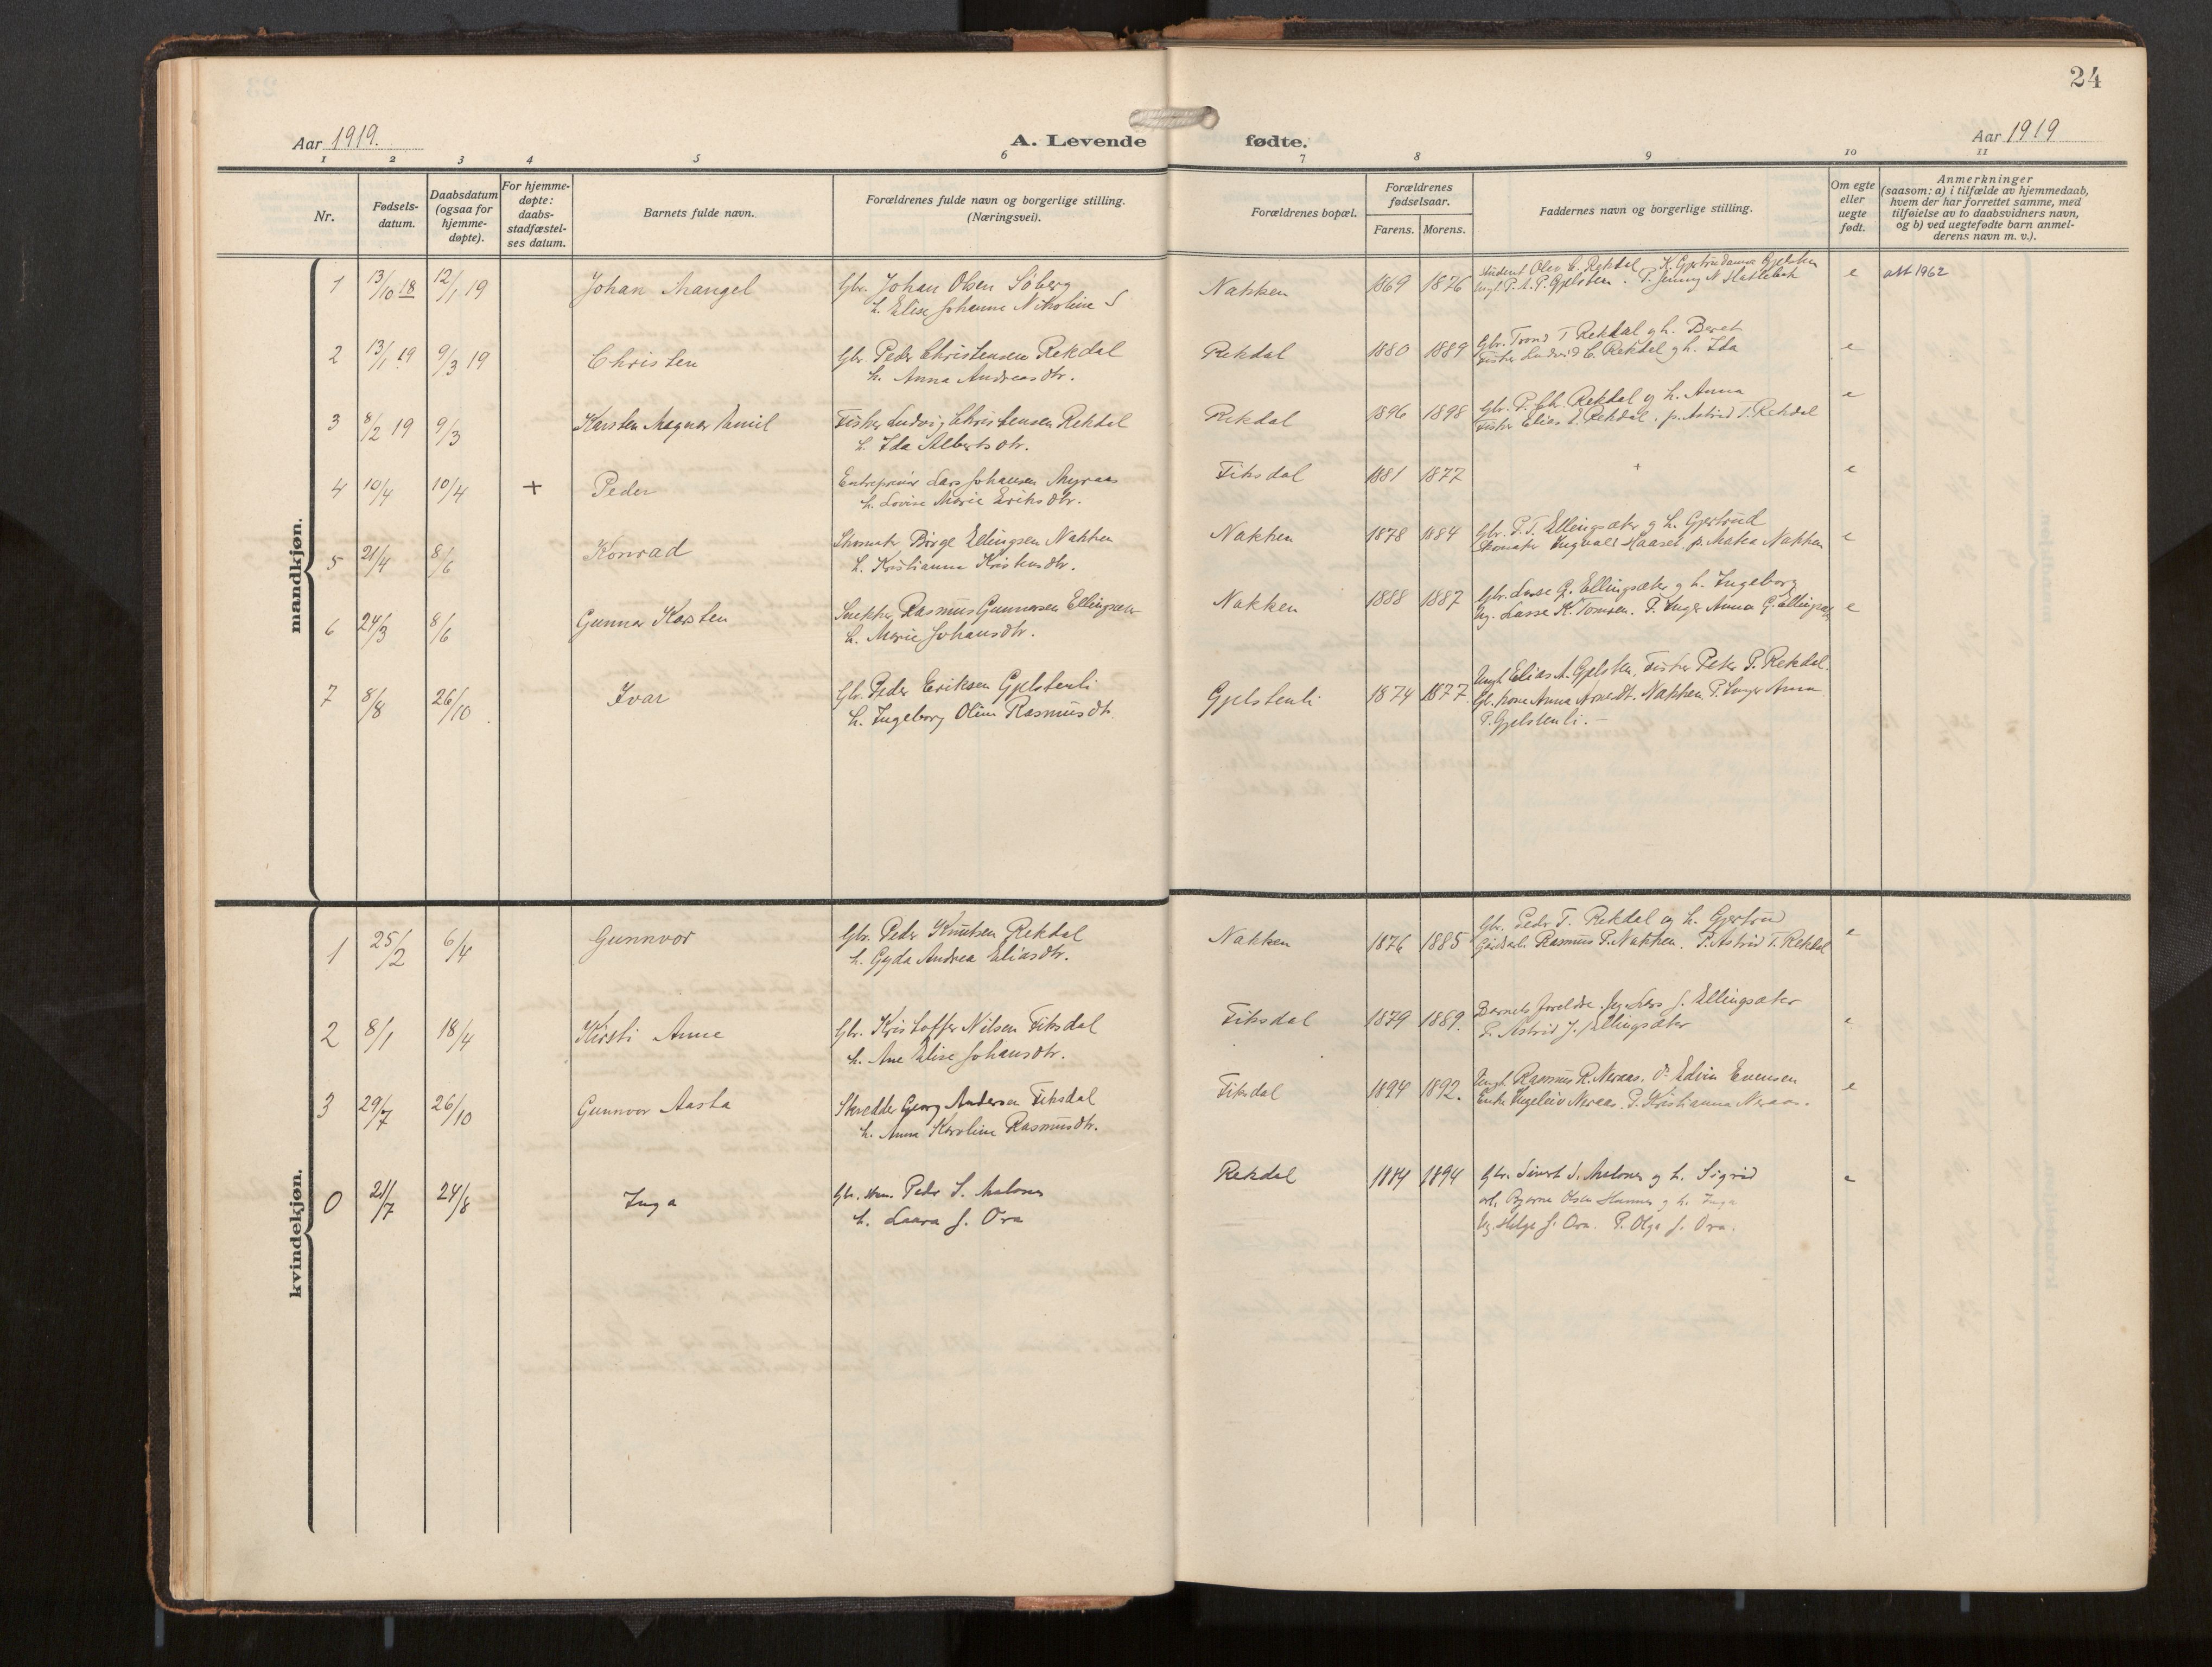 24
Aar 1919.
A. Levende fødte.
Aar 1919
1 2 3 4 5 6 7 8 9 10 11
Nr.
Fødsels-
datum.
Daabsdatum
(ogsaa for
hjemme-
døpte).
For hjemme-
døpte:
daabs-
stadfæstel-
ses datum.
Barnets fulde navn.
Forældrenes fulde navn og borgerlige stilling.
(Næringsvei).
Forældrenes bopæl.
Forældrenes
fødselsaar.
Farens. Morens.
Faddernes navn og borgerlige stilling.
Om egte
eller
uegte
født.
Anmerkninger
(saasom: a) i tilfælde av hjemmedaab,
hvem der har forrettet samme, med
tilføielse av to daabsvidners navn,
og b) ved uegtefødte barn anmel-
derens navn m. v.).
mandkjøn.
1 13/10 18 12/1 19 Johan Mangel Gbr. Johan Olsen Söberg
h. Elise Johanne Nikoline S
Nakken 1869 1876 student Olav C. Rekdal K. Gjertrud Gjelsten
Ungk. P. A. P. Gjelsten. P. Jenny N. Hattebak
e att 1962
2 13/1 19 9/3 19 Christen Gbr. Peder Christensen Rekdal
h. Anna Andreasdtr.
Rekdal 1880 1889 Gbr. Trond T Rekdal og h. Beret
Fisker Ludvid C. Rekdal og h. Ida
e
3 8/2 19 9/3 Karsten Magnar Emil Fisker Ludvig Christensen Rekdal
h. Ida Albertsdtr.
Rekdal 1896 1898 Gbr. P. Ch. Rekdal og h. Anna
Fisker Elias L. Rekdal. p. Astrid T. Rekdal
e
4 10/4 10/4 + Peder Entreprenør Lars Johansen Myraas
h. Lovise Marie Eriksdtr.
Fiksdal 1881 1877 + e
5 21/4 8/6 Konrad Skomaker Börge Ellingsen Nakken
h. Kristianna Kristensdtr.
Nakken 1878 1884 Gbr. P. T. Ellingsæter og h. Gjertrud
Skomaker Ingvald Haaset. p. Matea Nakken
e
6 24/3 8/6 Gunnar Karsten Snekker Rasmus Gunnarsen Ellingsæter
h. Marie Johansdtr.
Nakken 1888 1887 Gbr. Lasse G. Ellingsæter og h. Ingeborg
Ug. Lasse K. Tomren. P. Inger Anna G. Ellingsæter
e
7 8/8 26/10 Ivar Gbr. Peder Eriksen Gjelstenli
h. Ingeborg Oline Rasmusdtr.
Gjelstenli 1874 1877. Ungk. Elias A. Gjelsten, Fisker Peter P. Rekdal.
Gbr. kone Anna Arnedt. Nakken P. Inger Anna
P. Gjelstenli. -
kvindekjøn.
1 25/2 6/4 Gunnvor Gbr. Peder Knutsen Rekdal
h. Gyda Andrea Eliasdtr.
Nakken 1876 1885 Gbr. Peder T. Rekdal og h. Gjertrud
Gårdarb. Rasmus P. Nakken. P. Astrid T. Rekdal
e
2 8/1 18/4 Kirsti Anne Gbr. Kristoffer Nilsen Fiksdal
h. Ane Elise Johansdtr.
Fiksdal 1879 1889. Barnets foreldre. Ug. Lars J. Ellingsæter
P. Astrid J. Ellingsæter
e
3 29/7 26/10 Gunnvor Aasta Skredder Georg Andersen Fiksdal
h. Anna Karoline Rasmusdtr.
Fiksdal 1894 1892. Ungk. Rasmus R. Neraas. do Edvin Evensen
Enke Ingeleiv Neraas. P. Kristianna Neraas.
e
0 21/7 24/8 Inga Gbr. Peder S. Malones
h. Laura J. Ora
Rekdal 1884 1894 Gbr. Sivert S. Malones og h. Sigrid
arb. Bjarne Olsen og h. Inga
Ug. Helge J. Ora. P. Olga J. Ora.
e